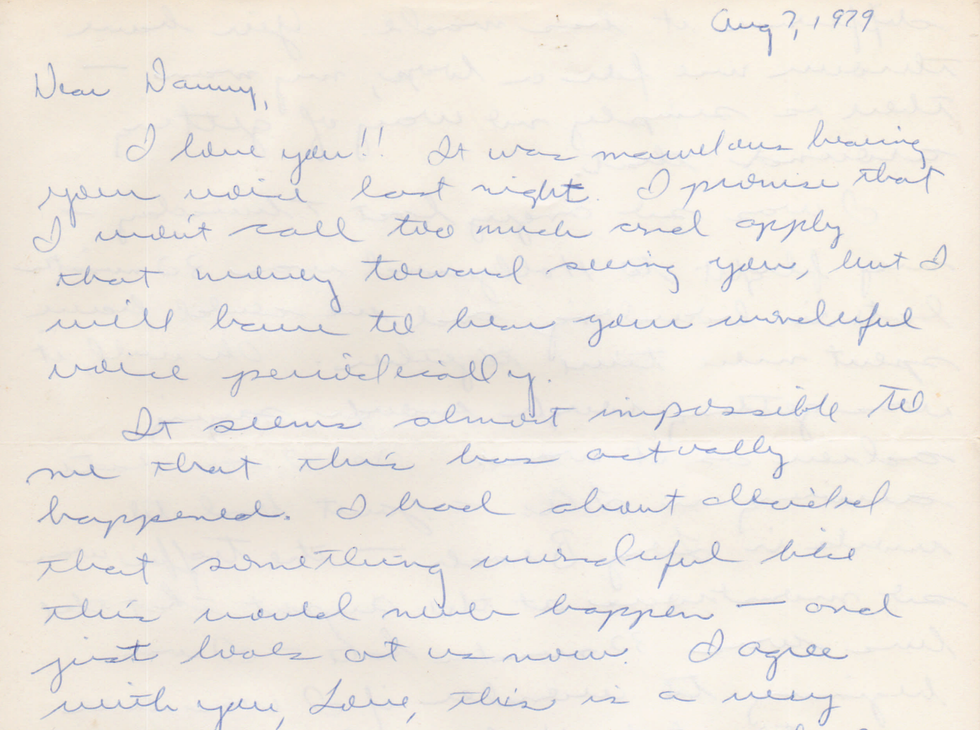 Aug 7, 1979
Dear Danny,
I love you!! It was marvelous hearing
your voice last night. I promise that
I won't call too much and apply
that money toward seeing you, but I
will have to hear your wonderful
voice periodically.
It seems almost impossible to
me that this has actually
happened. I had about decided
that something wonderful like
this would never happen — and
just look at us now. I agree
with you, Love, this is a very